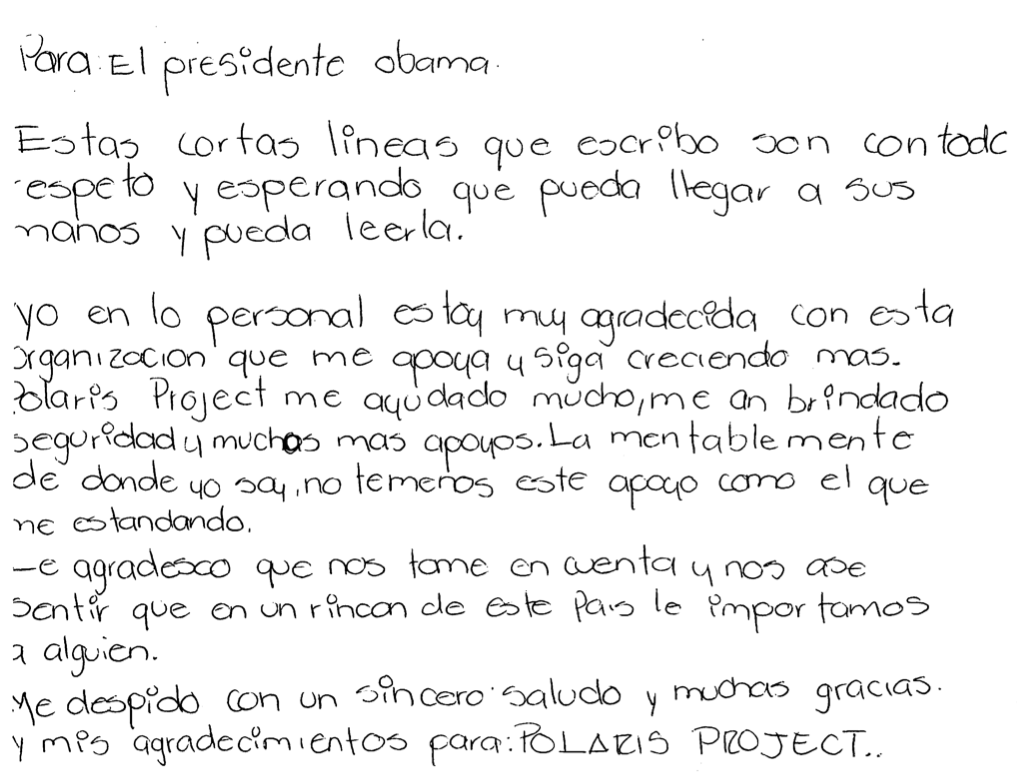 Para: El presidente obama.
Estas cortas lineas que escribo son con todo
respeto y esperando que pueda llegar a sus
manos y pueda leerla.
yo en lo personal estoy muy agradecida con esta
organizacion que me apoya y siga creciendo mas.
Polaris Project me ayudado mucho, me an brindado
seguridad y muchas mas apoyos. La mentable mente
de donde yo soy, no temenos este apoyo como el que
me estandando.
Te agradesco que nos tome en cuenta y nos ase
sentir que en un rincon de este Pais le importamos
a alguien.
Me despido con un sincero saludo y muchas gracias.
y mis agradecimientos para: POLARIS PROJECT..